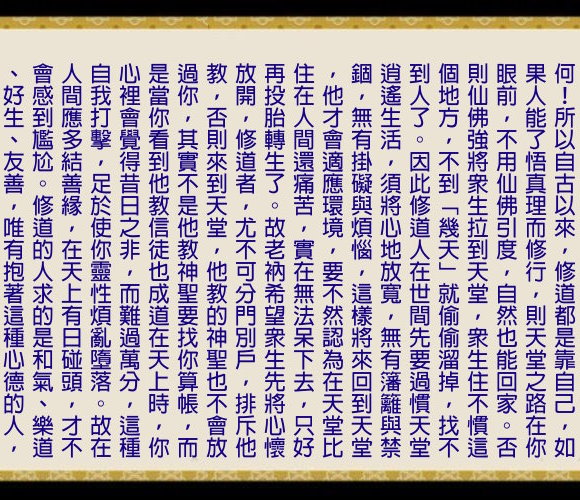 何！所以自古以來，修道都是靠自己，如
果人能了悟真理而修行，則天堂之路在你
眼前，不用仙佛引度，自然也能回家。否
則仙佛強將衆生拉到天堂，衆生住不慣這
個地方，不到「幾天」就偷偷溜掉，找不
到人了。因此修道人在世間先要過慣天堂
逍遙生活，須將心地放寬，無有藩籬與禁
錮，無有掛礙與煩惱，這樣將來回到天堂
，他才會適應環境，要不然認為在天堂比
住在人間還痛苦，實在無法呆下去，只好
再投胎轉生了。故老衲希望衆生先將心懷
放開，修道者，尤不可分門別戶，排斥他
教，否則來到天堂，他教的神聖也不會放
過你，其實不是他教神聖要找你算帳，而
是當你看到他教信徒也成道在天上時，你
心裡會覺得昔日之非，而難過萬分，這種
自我打擊，足於使你靈性煩亂墮落。故在
人間應多結善緣，在天上有日碰頭，才不
會感到尷尬。修道的人求的是和氣、樂道
、好生、友善，唯有抱著這種心德的人，